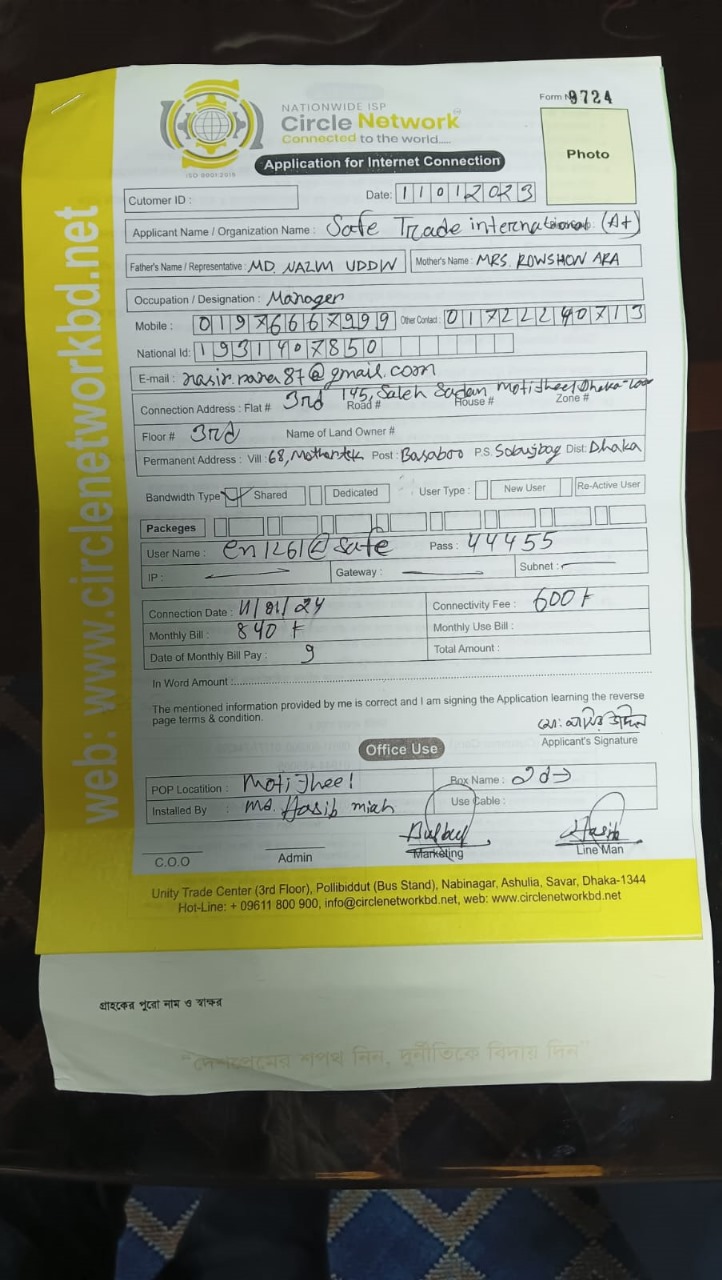 NATIONWIDE ISP
Circle Network
Connected to the world.....
ISO 9001:2015
Form N 9724
Application for Internet Connection
Photo
Cutomer ID :
Date: 11012023
Applicant Name / Organization Name : Safe Trade international (A+)
Father's Name / Representative : MD. NAZIM UDDIN
Mother's Name : MRS. ROWSHON ARA
Occupation / Designation : Manager
Mobile : 01976667999 Other Contact : 01722240713
National Id: 1931407850
E-mail : nasir.rana87@gmail.com
Connection Address : Flat # 3rd 145, Saleh Sadan Motijheel Dhaka-
Road # House # Zone #
Floor # 3rd Name of Land Owner #
Permanent Address : Vill : 68, Mothertek Post : Basaboo P.S. Sobujbag Dist: Dhaka
Bandwidth Type Shared Dedicated User Type : New User Re-Active User
Packeges
User Name : en1261@safe Pass : 44455
IP : Gateway : Subnet :
Connection Date : 11/01/24 Connectivity Fee : 600 t
Monthly Bill : 840 t Monthly Use Bill :
Date of Monthly Bill Pay : 9 Total Amount :
In Word Amount :
The mentioned information provided by me is correct and I am signing the Application learning the reverse
page terms & condition.
Applicant's Signature
Office Use
POP Locatition : Motijheel Box Name :
Installed By : Md. Hasib miah Use Cable :
C.O.O Admin Marketing Hasib Line Man
Unity Trade Center (3rd Floor), Pollibiddut (Bus Stand), Nabinagar, Ashulia, Savar, Dhaka-1344
Hot-Line: + 09611 800 900, info@circlenetworkbd.net, web: www.circlenetworkbd.net
web: www.circlenetworkbd.net
গ্রাহকের পুরো নাম ও স্বাক্ষর
"দেশপ্রেমের শপথ নিন, দুর্নীতিকে বিদায় দিন"